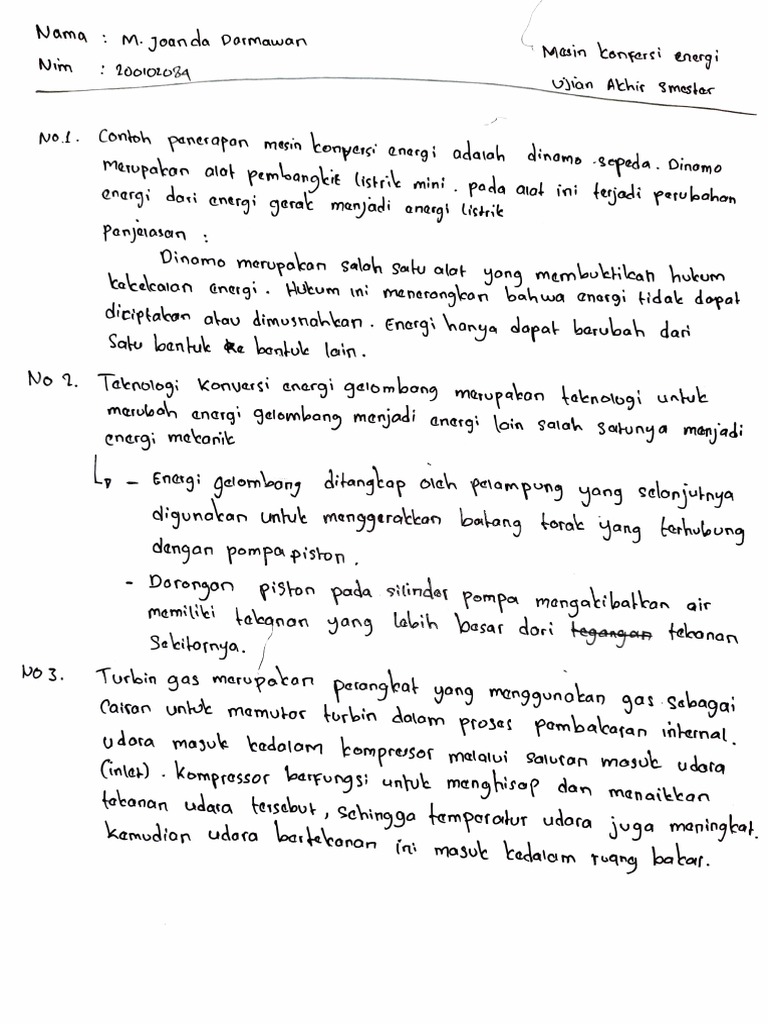 Nama : M. Joanda Darmawan
Nim : 200102089
Mesin konfersi energi
Ujian Akhir Smester
No.1. Contoh penerapan mesin konversi energi adalah dinamo sepeda. Dinamo
merupakan alat pembangkit listrik mini. pada alat ini terjadi perubahan
energi dari energi gerak menjadi energi listrik
Penjelasan :
Dinamo merupakan salah satu alat yang membuktikan hukum
kekekalan energi. Hukum ini menerangkan bahwa energi tidak dapat
diciptakan atau dimusnahkan. Energi hanya dapat berubah dari
satu bentuk ke bentuk lain.
No 2. Teknologi konversi energi gelombang merupakan teknologi untuk
merubah energi gelombang menjadi energi lain salah satunya menjadi
energi mekanik
- Energi gelombang ditangkap oleh pelampung yang selanjutnya
digunakan untuk menggerakkan batang torak yang terhubung
dengan pompa piston.
- Dorongan piston pada silinder pompa mengakibatkan air
memiliki tekanan yang lebih besar dari tegangan tekanan
Sekitarnya.
No 3. Turbin gas merupakan perangkat yang menggunakan gas sebagai
Cairan untuk memutar turbin dalam proses pembakaran internal.
udara masuk kedalam kompressor melalui saluran masuk udara
(inlet). Kompressor berfungsi untuk menghisap dan menaikkan
tekanan udara tersebut, sehingga temperatur udara juga meningkat.
kemudian udara bertekanan ini masuk kedalam ruang bakar.